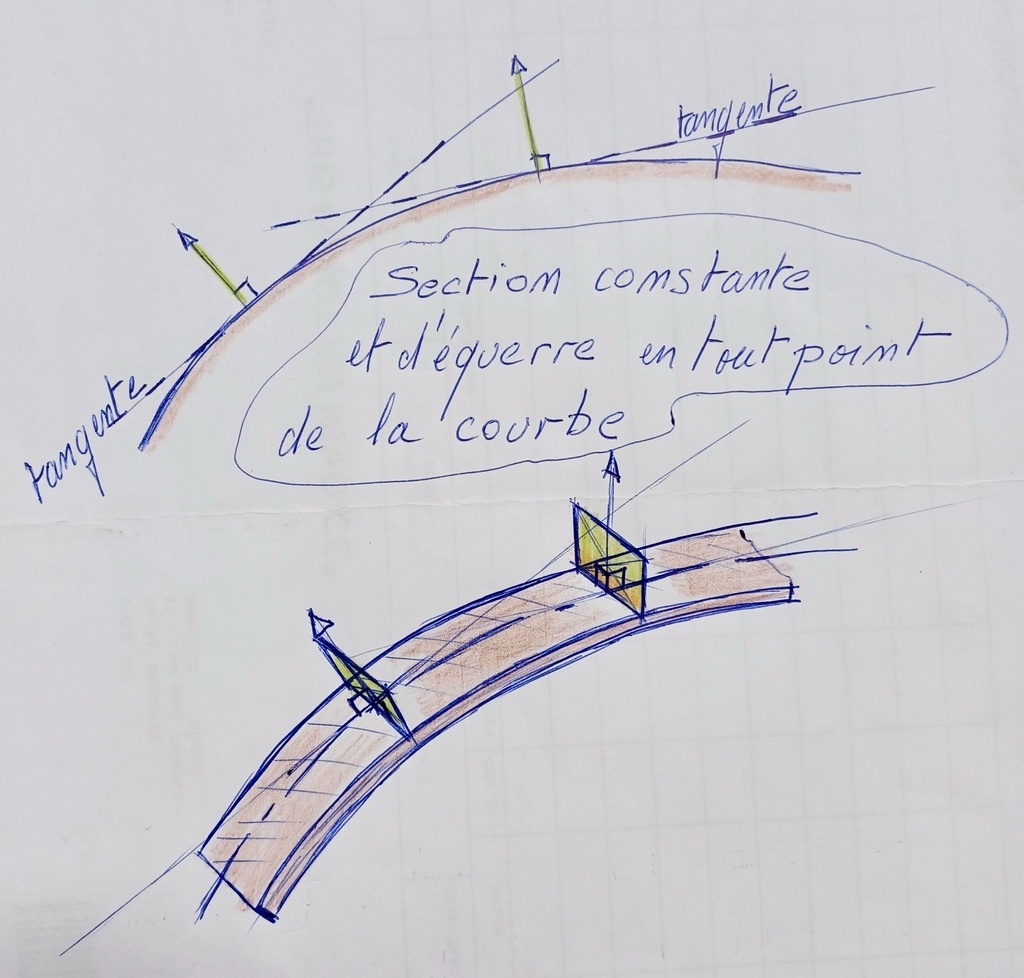 tangente
Section constante
et d'équerre en tout point
de la courbe
tangente